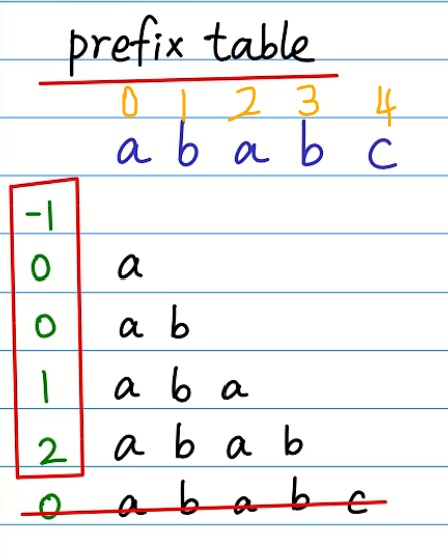 prefix table
0 1 2 3 4
a b a b c
-1
0 a
0 a b
1 a b a
2 a b a b
0 a b a b c